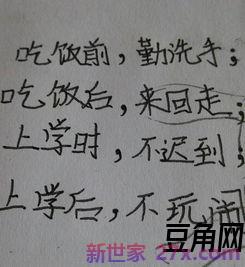 吃饭前，勤洗手；
吃饭后，来回走；
上学时，不迟到；
上学后，不玩闹
豆角网
新世家 35xss.com